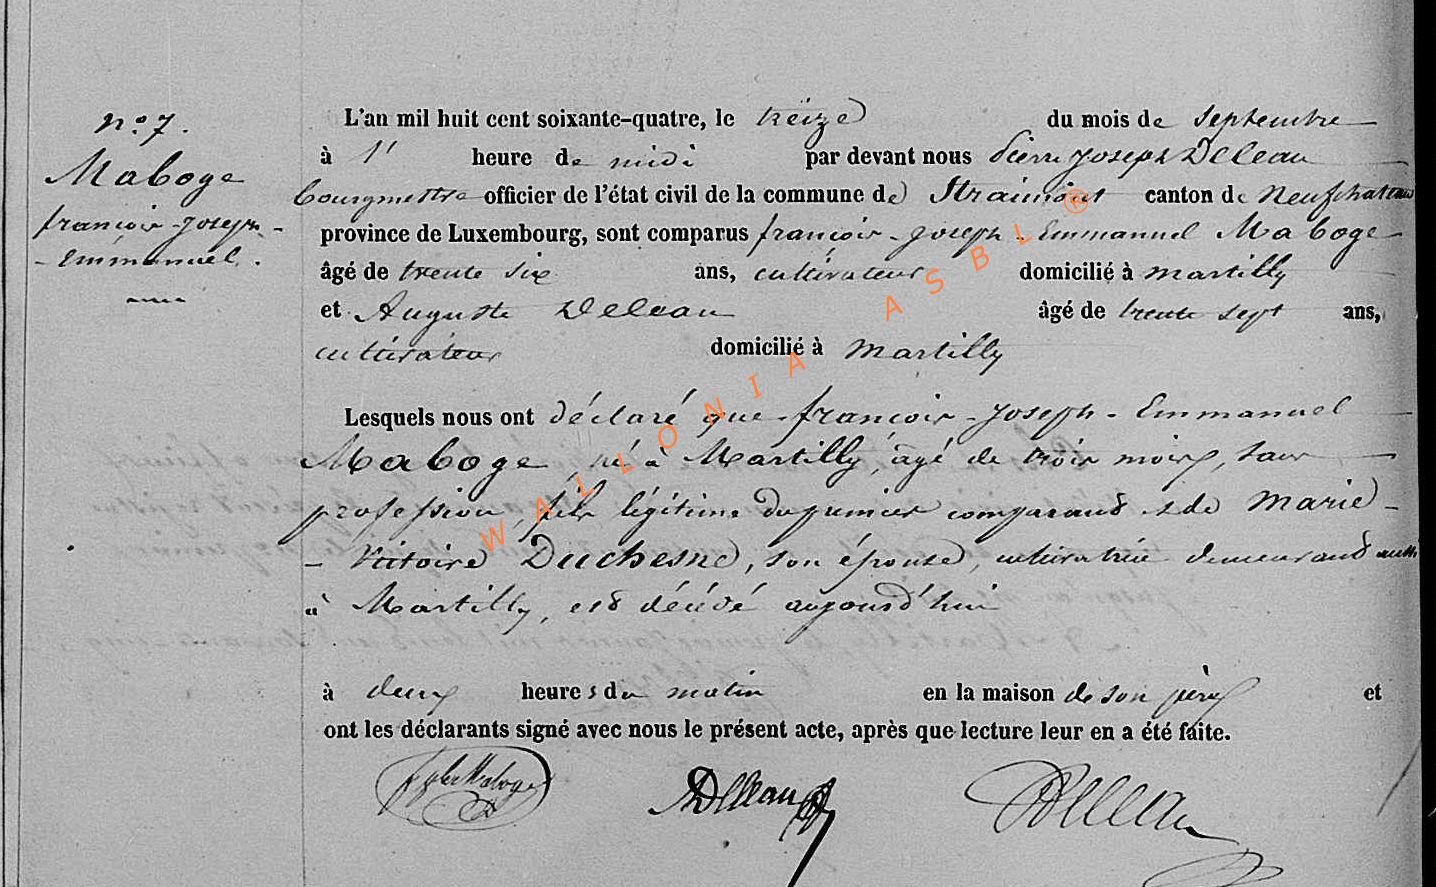 n° 7.
Maboge
françois-Joseph-
-Emmanuel.
L'an mil huit cent soixante-quatre, le treize du mois de septembre
à l' heure de midi par devant nous Pierre Joseph Deleau
bourgmestre officier de l'état civil de la commune de Straimont canton de Neufchateau
province de Luxembourg, sont comparus françois-Joseph-Emmanuel Maboge
âgé de trente six ans, cultivateur domicilié à martilly
et Auguste Deleau âgé de trente sept ans,
cultivateur domicilié à martilly
Lesquels nous ont déclaré que françois-Joseph-Emmanuel
Maboge, né à Martilly, âgé de trois mois, sans
profession, fils légitime du premier comparant & de Marie-
-Victoire Duchesne, son épouse, cultivatrice demeurant aussi
à Martilly, est décédé aujourd'hui
à deux heures du matin en la maison de son père et
ont les déclarants signé avec nous le présent acte, après que lecture leur en a été faite.
Maboge ADeleau Deleau
WALLONIA ASBL ®